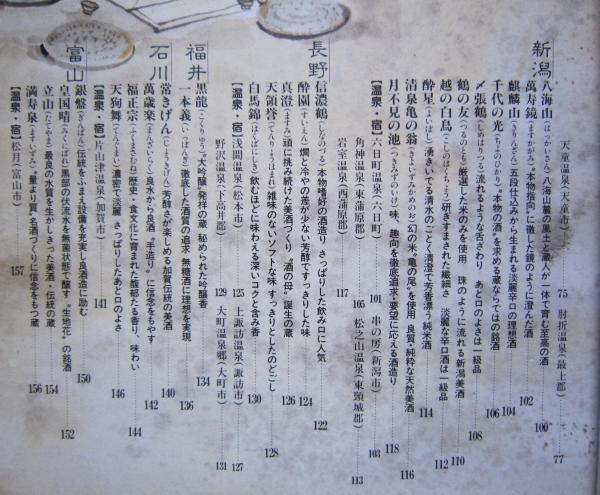 天童温泉（天童市）……75 肘折温泉（最上郡）……77
新潟
八海山（はっかいさん）八海山麓の風土と蔵人が一体で育む至高の酒……100
萬寿鏡（ますかがみ）“本物指向”に徹した鏡のように澄んだ酒……102
麒麟山（きりんざん）五段仕込みから生まれる淡麗辛口の理想酒……104
千代の光（ちよのひかり）“本物の酒”を求める蔵ならでは の銘酒……106
〆張鶴（しめはりつる）流れるような舌ざわり あと口のよさは一級品……108
鶴の友（つるのとも）厳選した米のみを使用 珠のように流れる新潟美酒……110
越の白鳥（こしのはくちょう）研ぎすまされた繊細さ 淡麗な辛口酒は一級品……112
酔星（よいぼし）湧きいてる清水のごとく清澄で芳香漂う純米酒……114
清泉亀の翁（きよいずみかめのお）幻の米“亀の尾”を使用 良質・純粋な天然美酒……116
月不見の池（つきみずのいけ）味、趣向を徹底追求・要望に応える酒造り……118
【温泉・宿】六日町温泉（六日町）……101 串の房（新潟市）……103
角神温泉（東蒲原郡）……105 松之山温泉（東頸城郡）……113
岩室温泉（西蒲原郡）……117
長野
信濃鶴（しなのづる）本物嗜好の酒造り さっぱりした飲み口に人気……122
酔園（すいえん）燗と冷やの差が少ない芳醇ですっきりした味……124
真澄（ますみ）頑に挑み続けた美酒づくり“酒の母”誕生の蔵……126
天領誉（てんりょうほまれ）雑味のないソフトな味 すっきりとしたのどごし……128
白馬錦（はくばにしき）飲むほどに味わえる深いコクと含み香……130
【温泉・宿】浅間温泉（松本市）……125 上諏訪温泉（諏訪市）……127
野沢温泉（下高井郡）……129 大町温泉郷（大町市）……131
福井
黒龍（こくりゅう）“大吟醸”発祥の蔵 秘められた吟醸香……134
一本義（いっぽんぎ）徹底した酒質の追求 無糖酒に理想を実現……136
石川
常きげん（じょうきげん）芳醇さが楽しめる加賀伝統の美酒……140
萬歳楽（まんざいらく）良水から良酒“手造り”に信念をもやす……142
福正宗（ふくまさむね）歴史・食文化に育まれた馥郁たる香り 味わい……144
天狗舞（てんぐまい）濃密で淡麗 さっぱりしたあと口のよさ……146
【温泉・宿】片山津温泉（加賀市）……141
富山
銀盤（ぎんばん）伝統をふまえ設備を充実し良酒造に励む……150
皇国晴（みくにばれ）黒部の伏流水を無菌状態で醸す“生地花”の銘酒……152
立山（たてやま）最良の水質を生かしきった美酒・伝統の蔵……154
満寿泉（ますいずみ）“量より質”名酒づくりに信念をもつ蔵……156
【温泉・宿】松月（富山市）……157